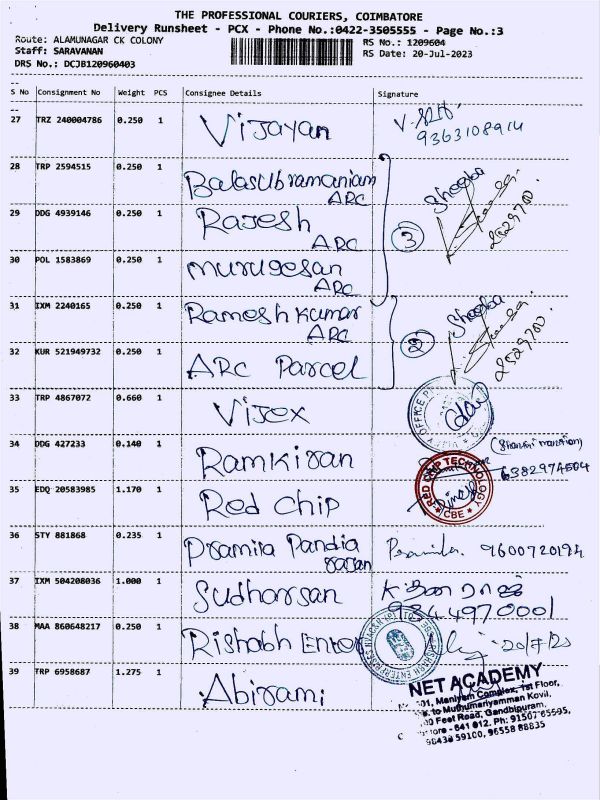 THE PROFESSIONAL COURIERS, COIMBATORE
Delivery Runsheet - PCX - Phone No.:0422-3505555 - Page No.:3
Route: ALAMUNAGAR CK COLONY
RS No.: 1209604
Staff: SARAVANAN
RS Date: 20-Jul-2023
DRS No.: DCJB120960403
S No Consignment No Weight PCS Consignee Details Signature
27 TRZ 240004786 0.250 1 Vijayan
9363108914
28 TRP 2594515 0.250 1 Balasubramaniam
ARC
29 DDG 4939146 0.250 1 Rajesh
ARC
3
30 POL 1583869 0.250 1 Murugesan
ARC
31 IXM 2240165 0.250 1 Ramesh Kumar
ARC
2
32 KUR 521949732 0.250 1 ARC Parcel
33 TRP 4867072 0.660 1 Vijex
34 DDG 427233 0.140 1 Ramkisan
6382974504
35 EDQ 20583985 1.170 1 Red Chip
RED CHIP TECHNOLOGY
CBE
36 STY 881868 0.235 1 Pramila Pandia
rasan
Pramila. 9600720194
37 IXM 504208036 1.000 1 Sudharsan
9844970001
38 MAA 860648217 0.250 1 Rishabh Enter
39 TRP 6958687 1.275 1 Abirami
NET ACADEMY
Maniyam Complex, 1st Floor,
to Muthumariyamman Kovil,
Feet Road, Gandhipuram,
- 641 012. Ph: 91507 65595,
98438 59100, 96558 88835